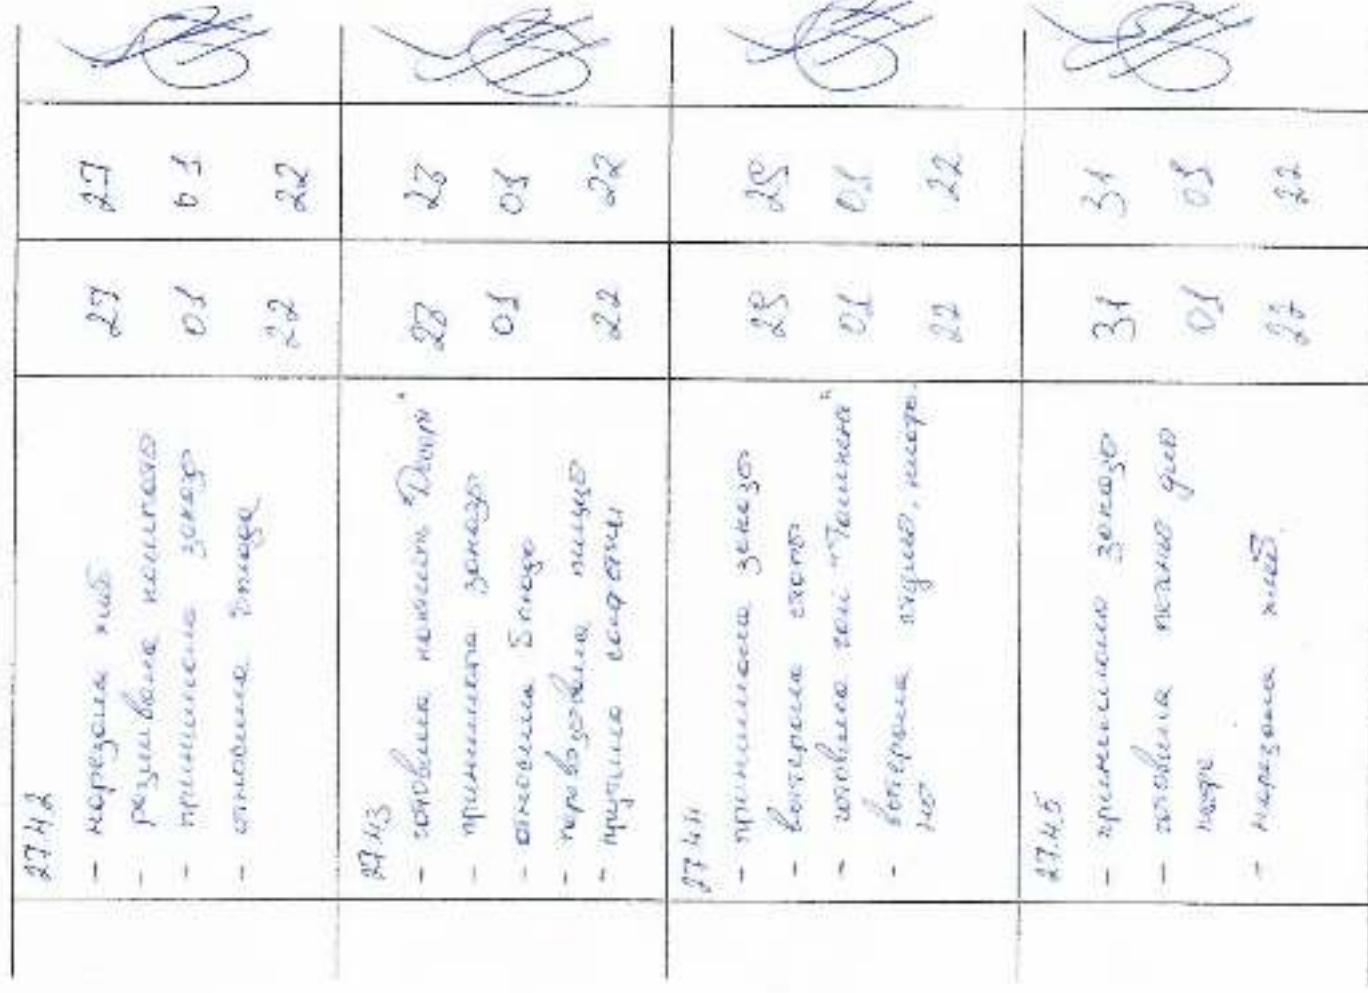 27.4.2
- нарезала хлеб
- разливала компото
- принимала заказо
- относила блюда
27 01 22
27 01 22
27.4.3
- готовила напиток "Дюрн"
- принимала заказо
- относила блюдо
- перевозила пиццо
- крутила салфетки
28 01 22
28 01 22
27.4.4
- принимала заказо
- вытирала столо
- готовила чай "Ташкент"
- вытерала
но
29 01 22
29 01 22
27.4.5
- принимала заказо
- готовила дио
кофе
- нарезала хлеб
31 01 22
31 01 22